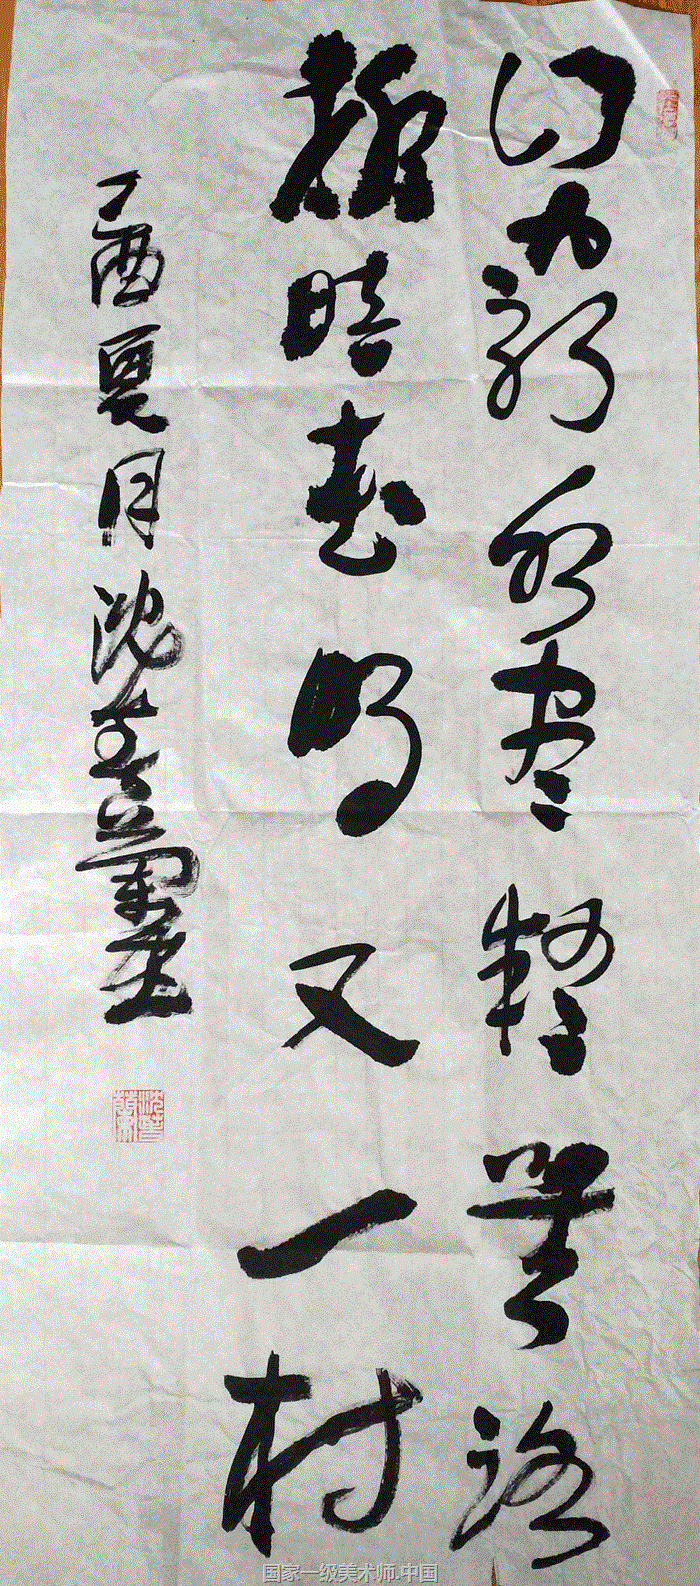 山窮水尽疑無路
柳暗花明又一村
丁酉夏月沈
国家一级美术师.中国